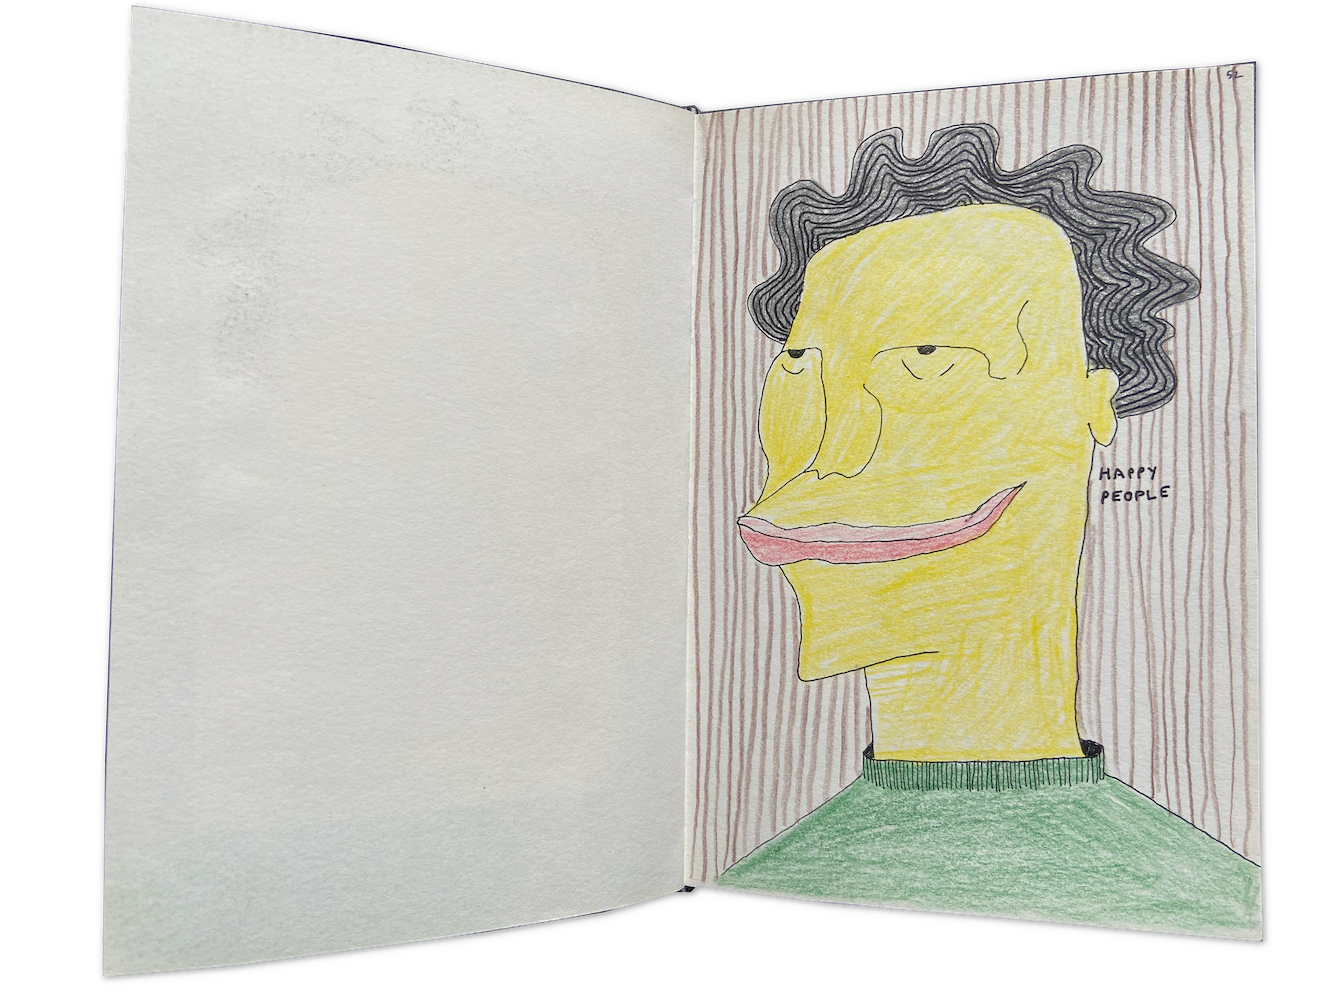 52
HAPPY
PEOPLE